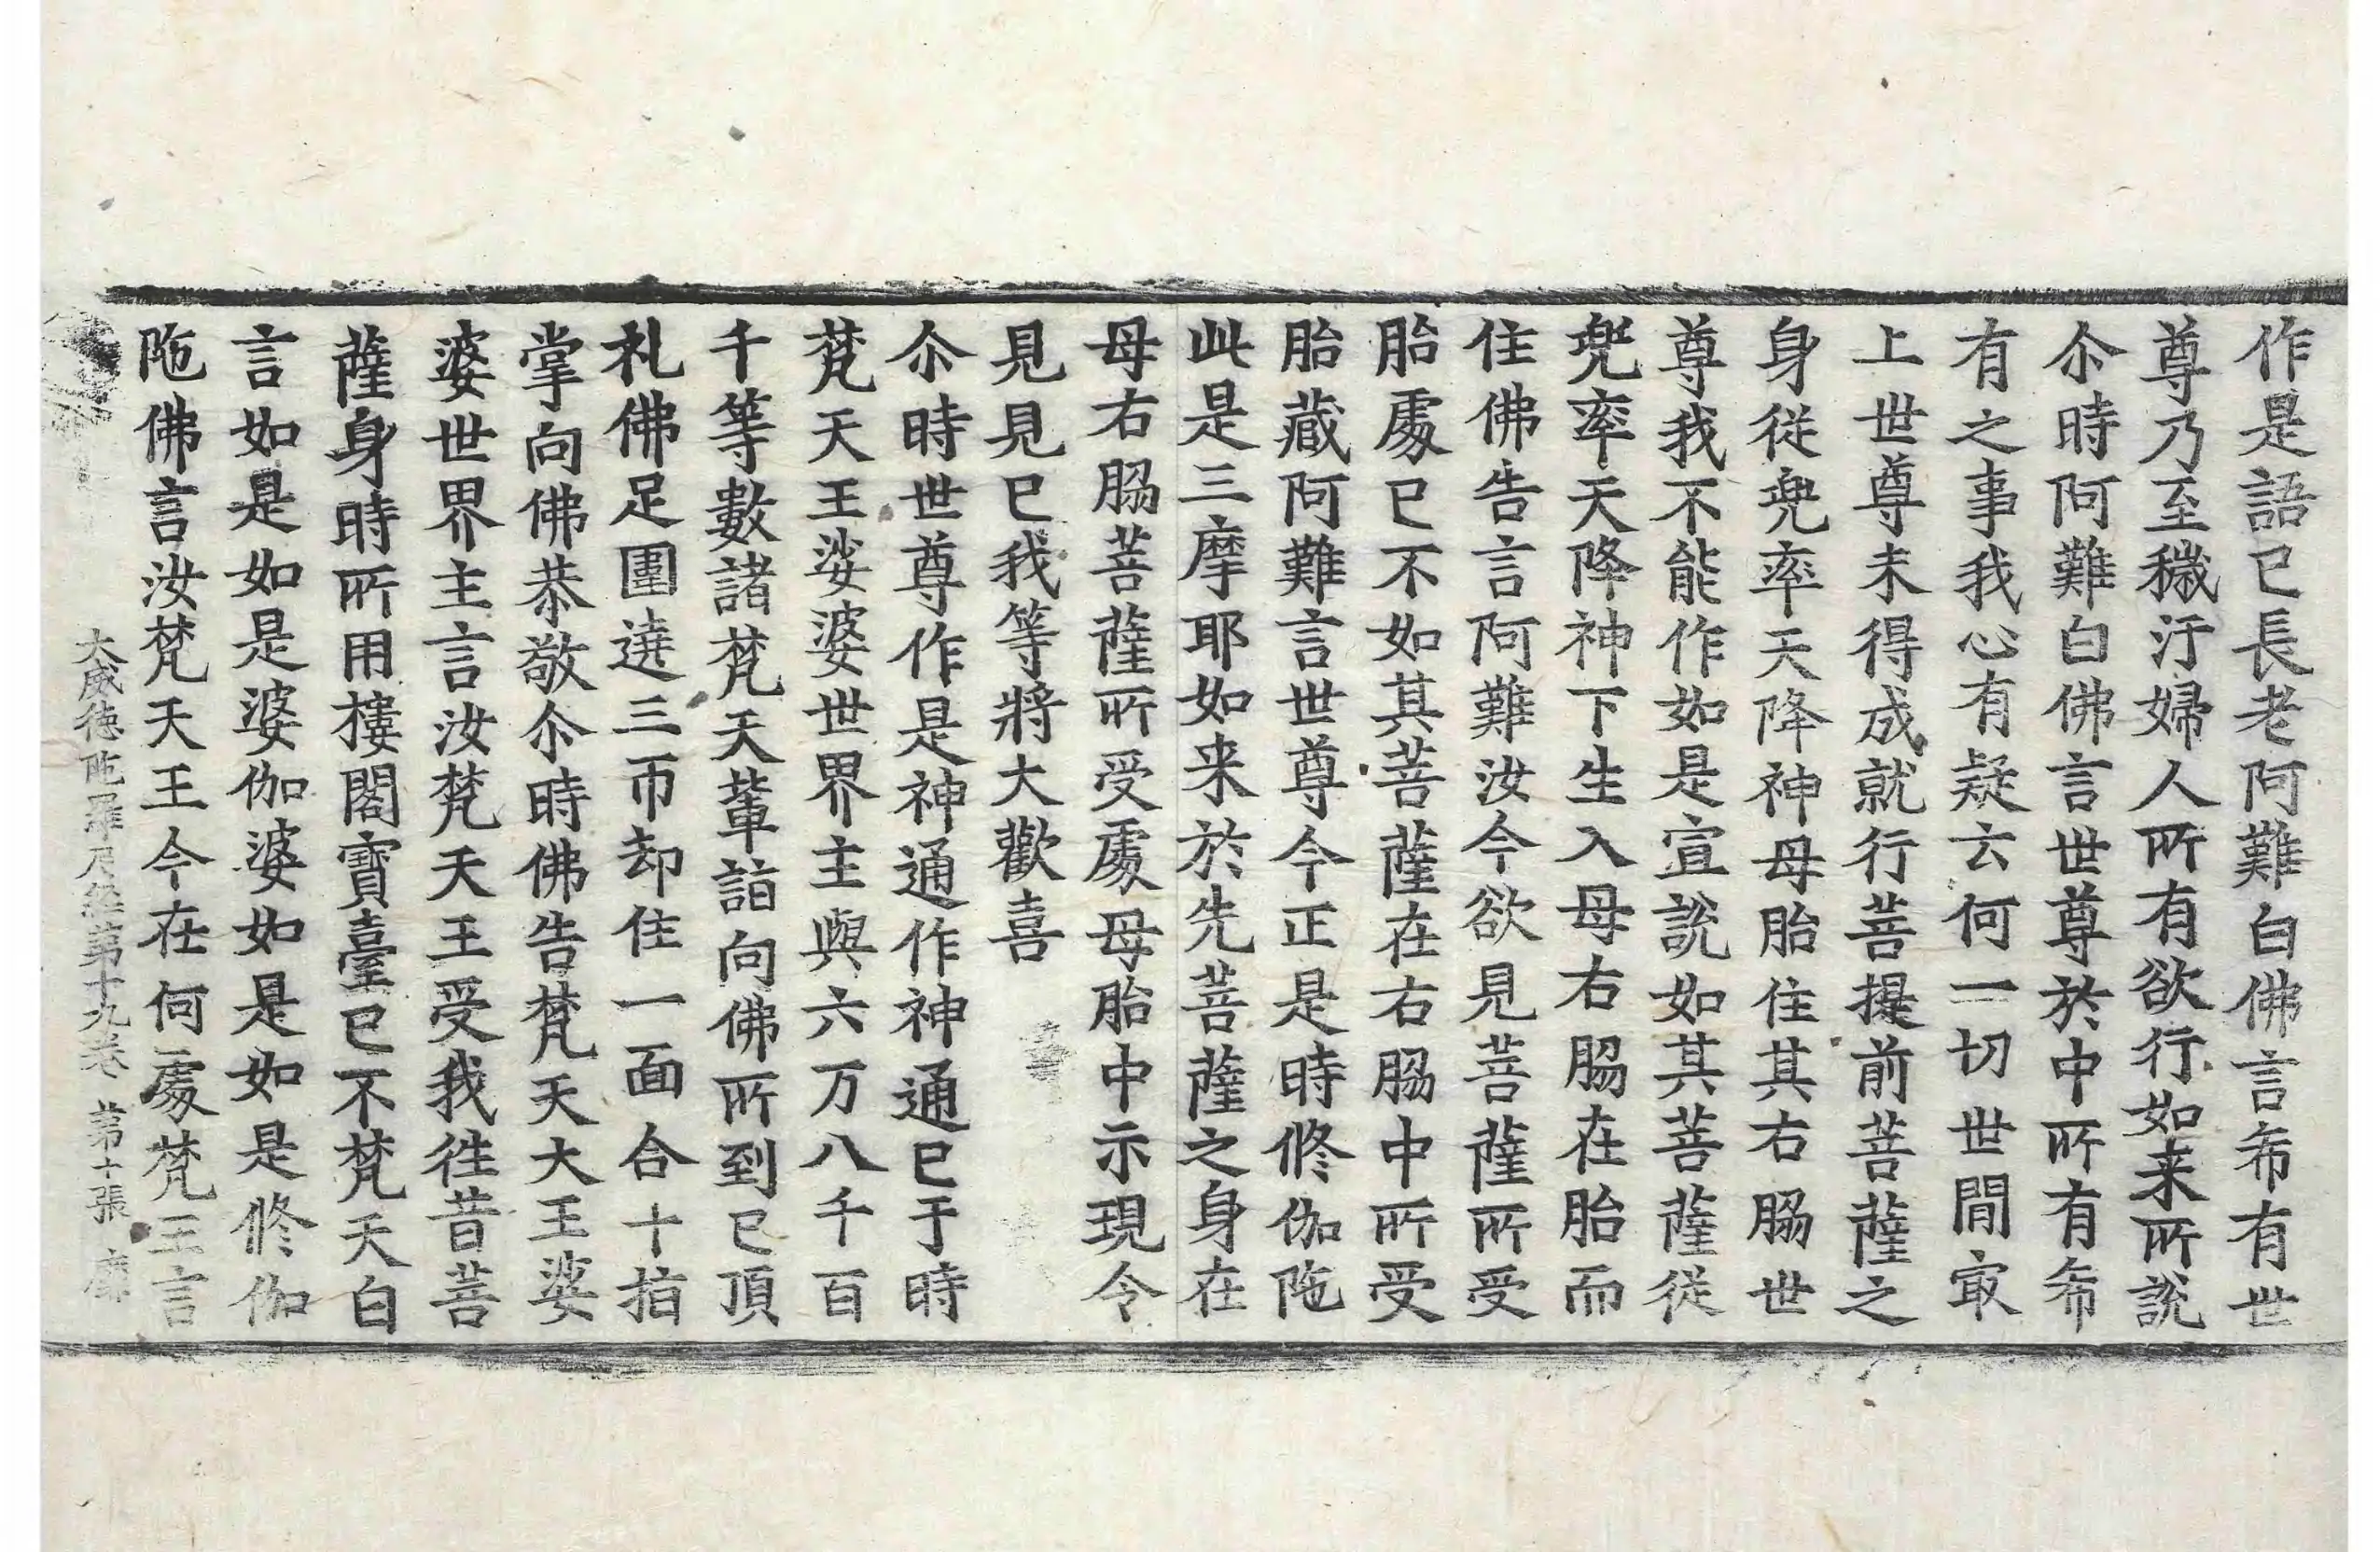 作是語已長老阿難白佛言希有世
尊乃至穢汙婦人所有欲行如来所說
尒時阿難白佛言世尊於中所有希
有之事我心有疑云何一切世間㝡
上世尊未得成就行菩提前菩薩之
身從兜率天降神母胎住其右脇世
尊我不能作如是宣說如其菩薩從
兜率天降神下生入母右脇在胎而
住佛告言阿難汝今欲見菩薩所受
胎處已不如其菩薩在右脇中所受
胎藏阿難言世尊今正是時修伽陁
此是三摩耶如来於先菩薩之身在
母右脇菩薩所受處母胎中示現令
見見已我等將大歡喜
尒時世尊作是神通作神通已于時
梵天王娑婆世界主與六万八千百
千等數諸梵天輩詣向佛所到已頂
礼佛足圍遶三帀却住一面合十指
掌向佛恭敬尒時佛告梵天大王娑
婆世界主言汝梵天王受我徃昔菩
薩身時所用樓閣寶臺已不梵天白
言如是如是婆伽婆如是如是修伽
陁佛言汝梵天王今在何處梵王言
大威徳陁羅尼經第十九卷 第十張 靡